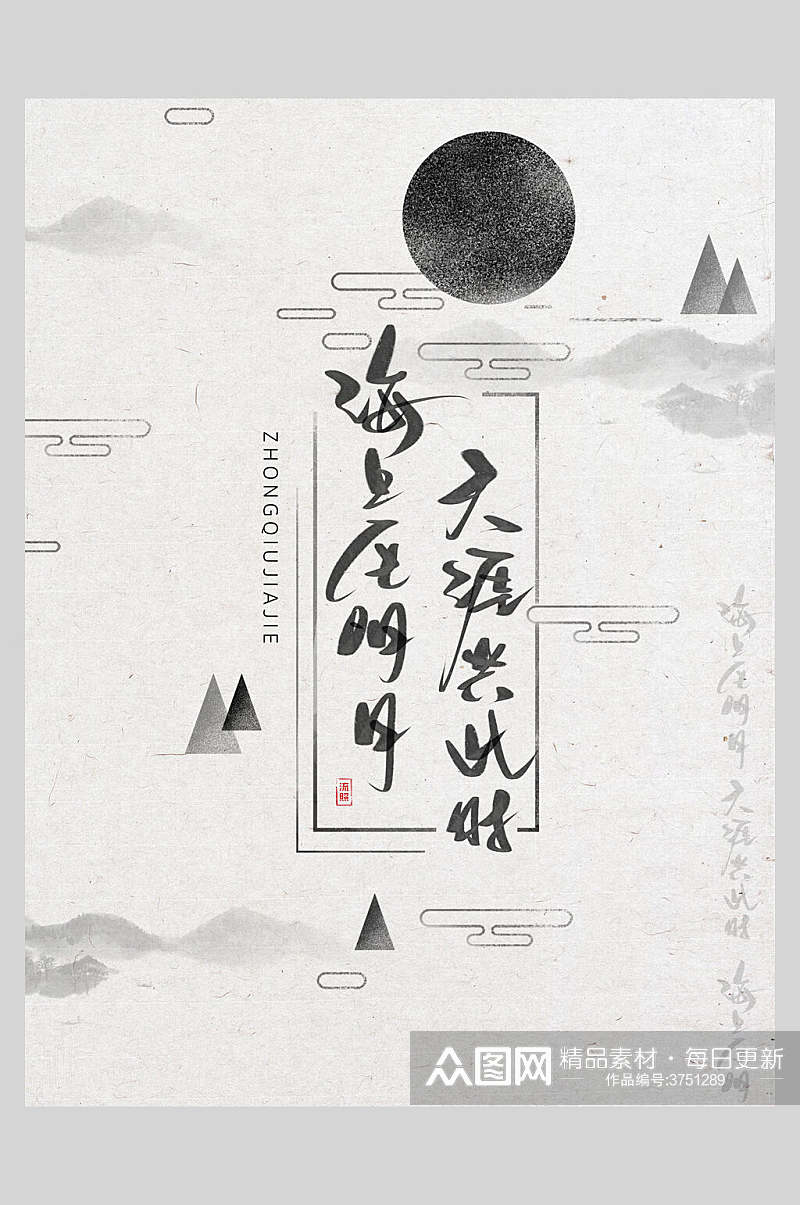 海上生明月
天涯共此时
ZHONGQIUJIAJIE
流照
海上生明月 天涯共此时 海上生明
众图网
精品素材·每日更新
作品编号:3751289